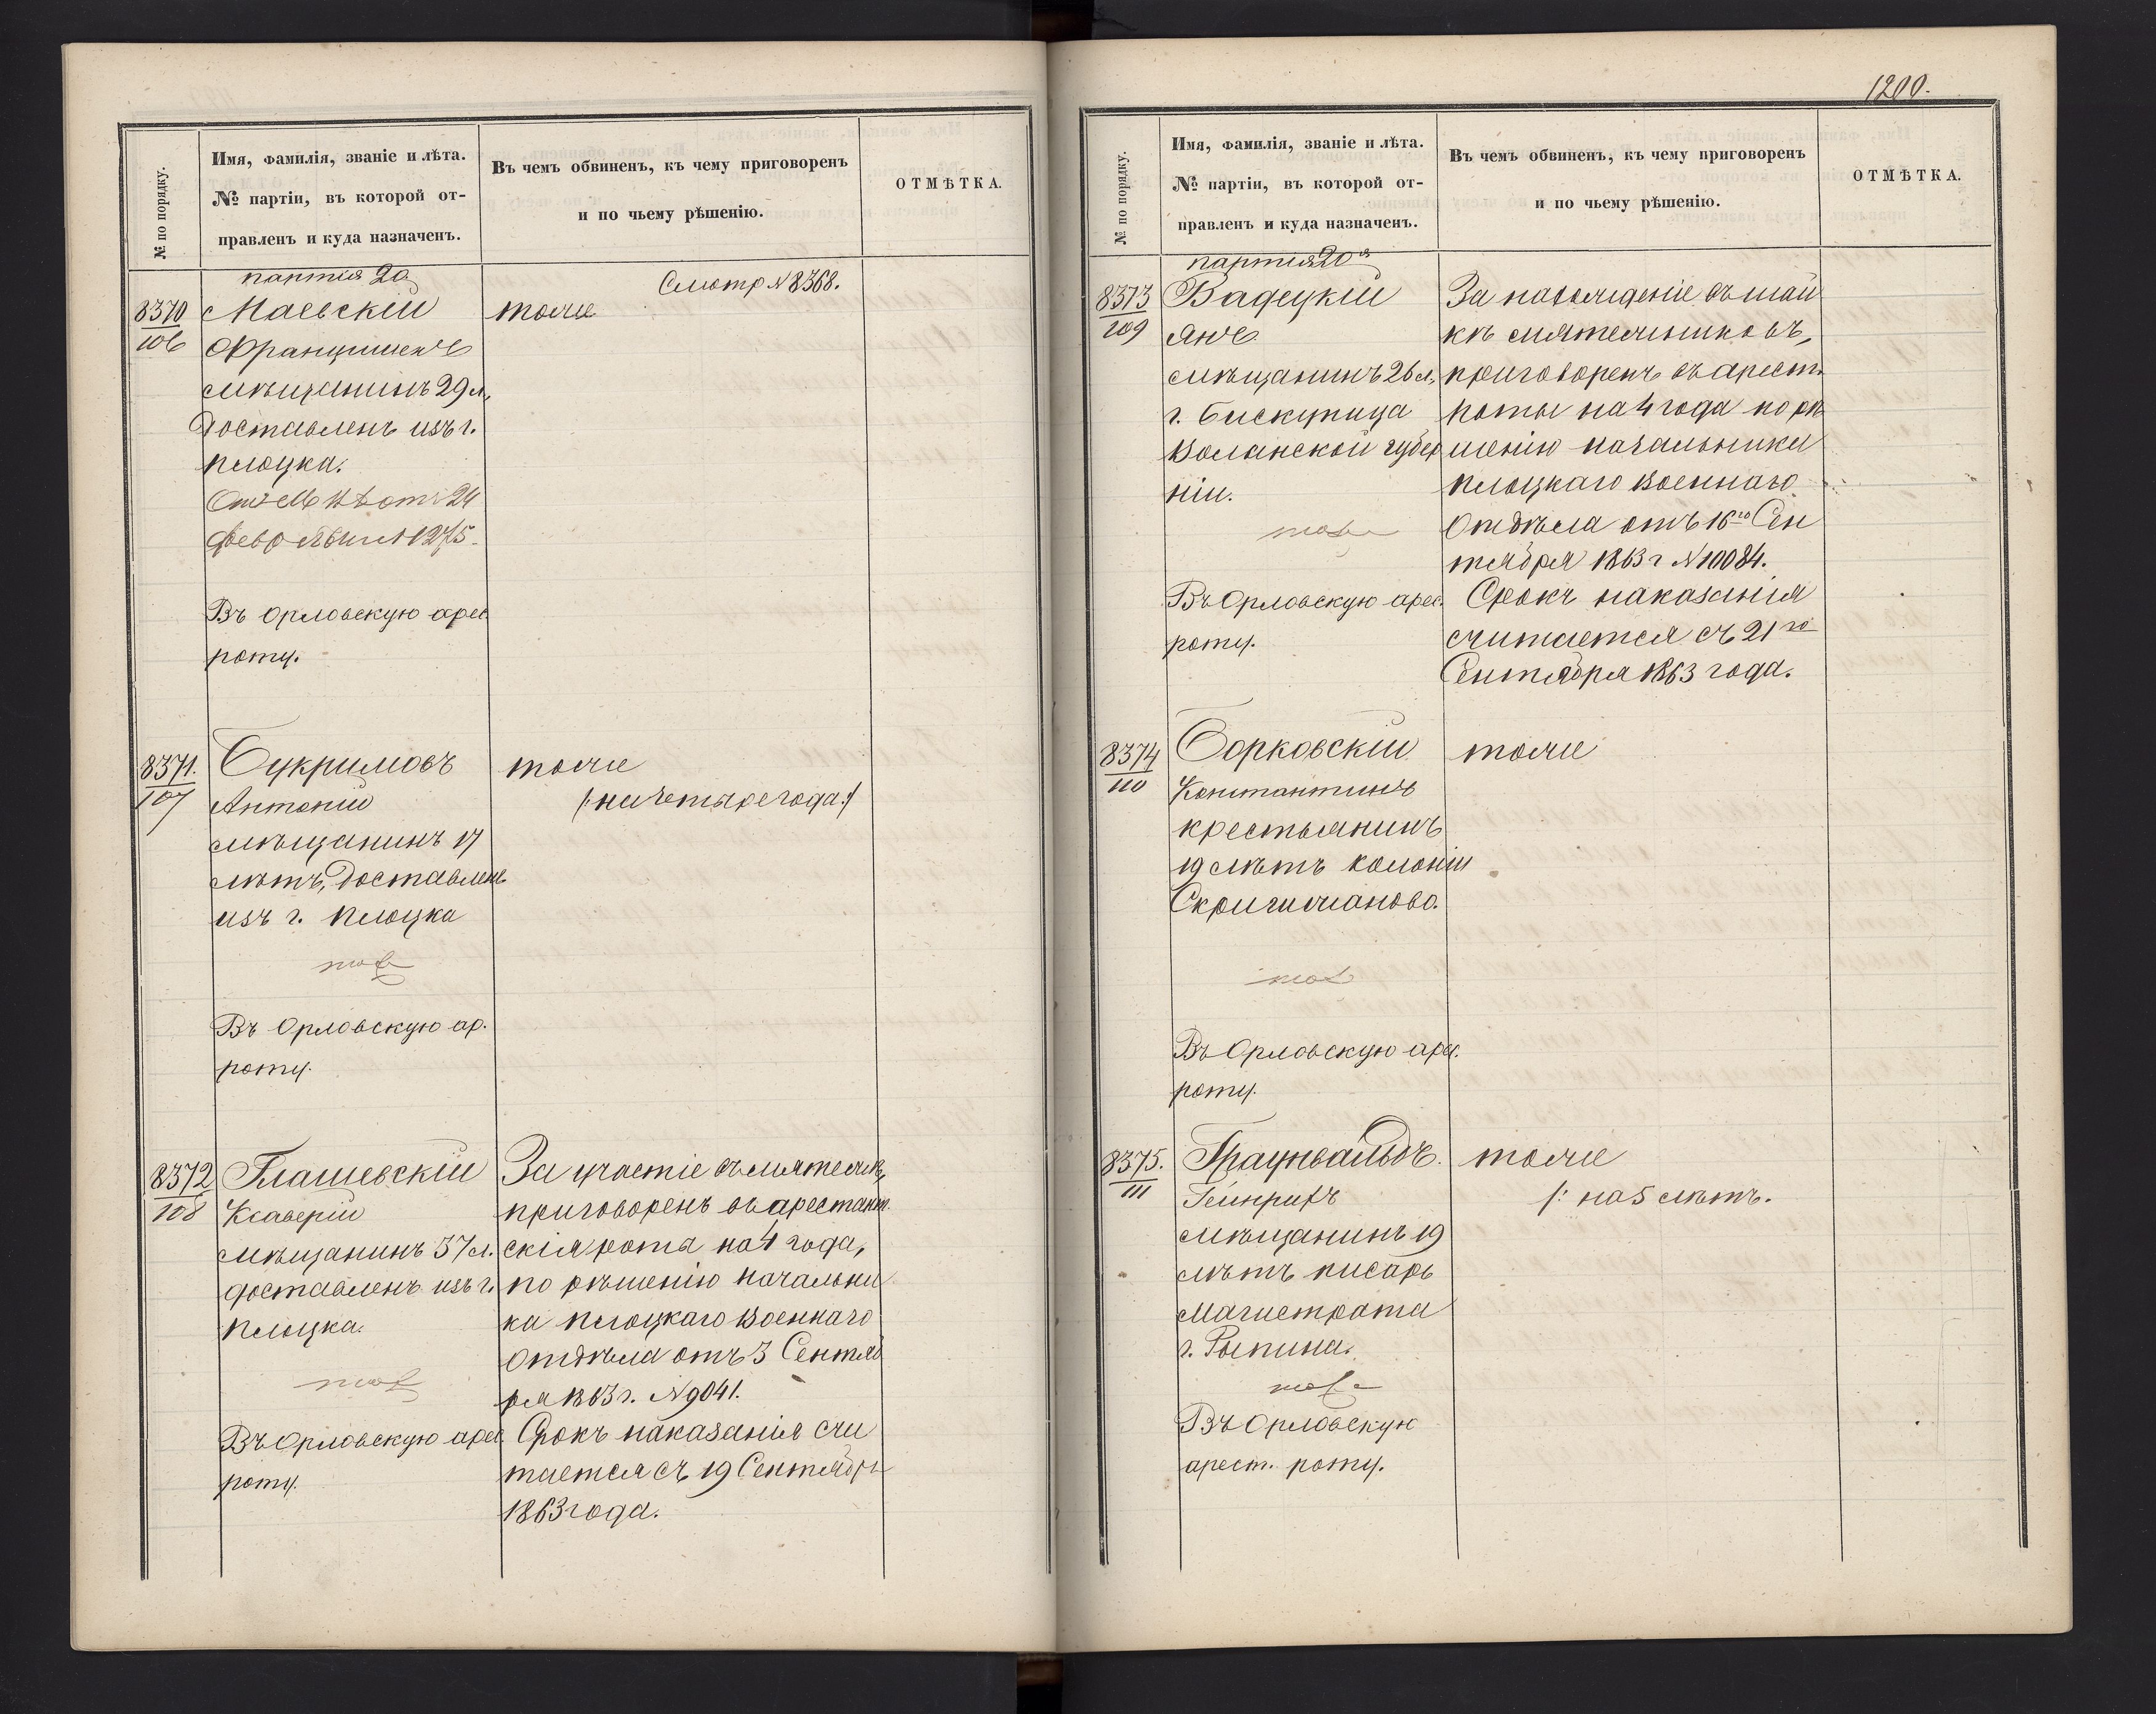 1200.
№ по порядку.
Имя, фамилія, званіе и лѣта.
№ партіи, въ которой от-
правленъ и куда назначенъ.
Въ чемъ обвиненъ, къ чему приговоренъ
и по чьему рѣшенію.
ОТМѢТКА.
партія 20
8370
106
Маевскій
Францишекъ
мѣщанинъ 29 л.,
доставленъ изъ г.
Плоцка.
отъ 24
Въ Орловскую арес
роту.
Смотр № 8368.
тоже
8371.
107
Букримовъ
Антоній
мѣщанинъ 17
лѣтъ, доставленъ
изъ г. Плоцка
тоже
Въ Орловскую ар.
роту.
тоже
/: на четыре года :/
8372
108
Глашевскій
Ксаверій
мѣщанинъ 37 л.
доставленъ изъ г.
Плоцка.
тоже
Въ Орловскую арес
роту.
За участіе въ мятежѣ,
приговоренъ въ арестант.
скія роты на 4 года,
по рѣшенію Начальни
ка Плоцкаго Военнаго
Отдѣла отъ 3 Сентяб
ря 1863 г. № 9041.
Срокъ наказанія счи
тается съ 19 Сентября
1863 года.
№ по порядку.
Имя, фамилія, званіе и лѣта.
№ партіи, въ которой от-
правленъ и куда назначенъ.
Въ чемъ обвиненъ, къ чему приговоренъ
и по чьему рѣшенію.
ОТМѢТКА.
партія 20я
8373
109
Вадецкій
Янъ
мѣщанинъ 26 л.,
г. Бискупица
Волынской губер
ніи.
тоже
Въ Орловскую арес.
роту.
За нахожденіе въ шай
кѣ мятежниковъ,
приговоренъ въ арест.
роты на 4 года по рѣ
шенію Начальника
Плоцкаго Военнаго
Отдѣла отъ 16го Сен
тября 1863 г № 10084.
Срокъ наказанія
считается съ 21го
Сентября 1863 года.
8374
110
Борковскій
Константинъ
крестьянинъ
19 лѣтъ колоніи
тоже
Въ Орловскую арес.
роту.
тоже
8375.
111
Браунвальдъ.
Гейнрихъ
мѣщанинъ 19
лѣтъ писарь
Магистрата
г. Рыпина.
тоже
Въ Орловскую
арест. роту.
тоже
/: на 5 лѣтъ.